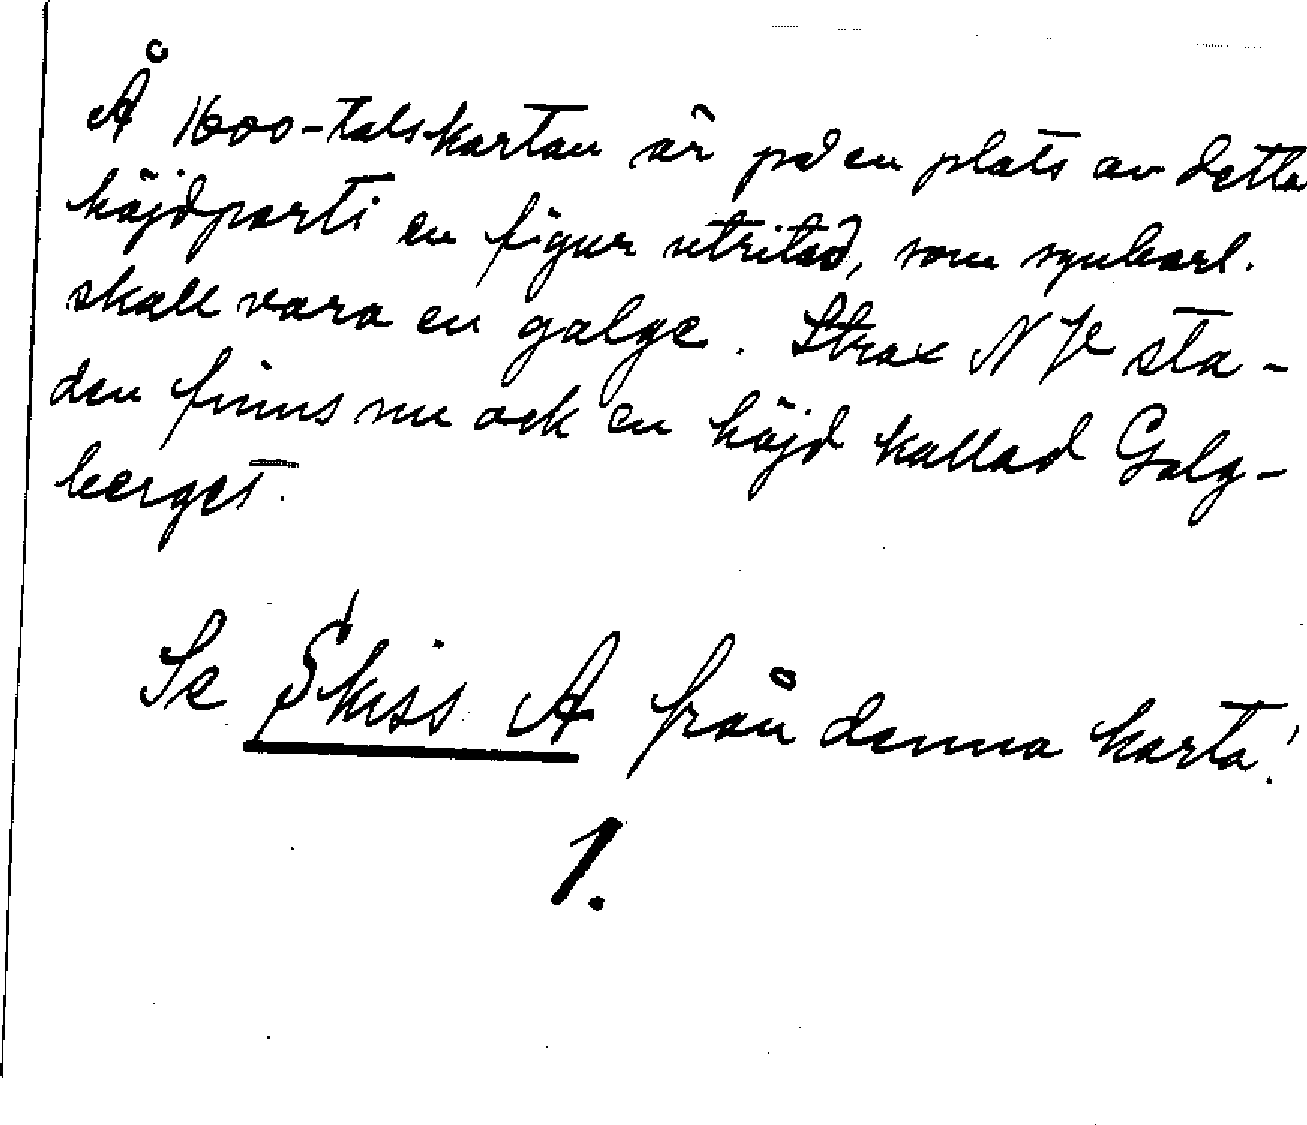 Å 1600-talskartan är på en plats av detta
höjdparti en figur utritad, som synbarl.
skall vara en galge. Strax NV sta-
den finns nu ock en höjd kallad Galg-
berget.
Se Skiss A från denna karta!
1.